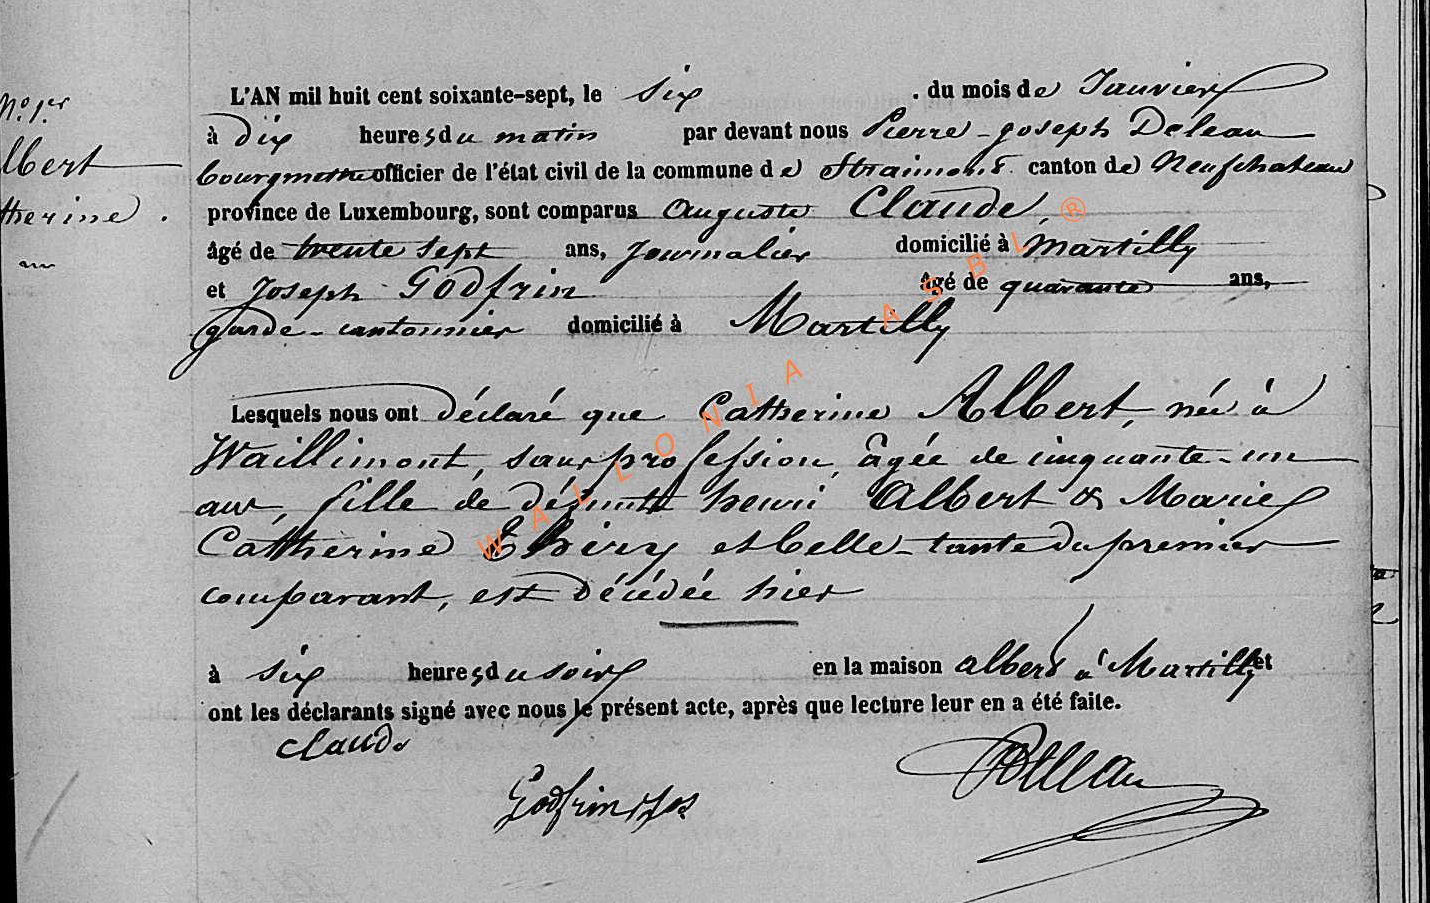 No. 1er
lbert
therine.
L'AN mil huit cent soixante-sept, le six . du mois de Janvier
à dix heures du matin par devant nous Pierre-Joseph Deleau
bourgmestre officier de l'état civil de la commune de Straimont canton de Neufchateau
province de Luxembourg, sont comparus Auguste Claude,
âgé de trente sept ans, Journalier domicilié à Martilly
et Joseph Godfrin âgé de quarante ans,
garde-cantonnier domicilié à Martilly
Lesquels nous ont déclaré que Catherine Albert, née à
Waillimont, sans profession, âgée de cinquante-un
ans, fille de défunts henri Albert & Marie
Catherine Thiry et belle-tante du premier
comparant, est décédée hier
à six heures du soir en la maison albert à Martilly et
ont les déclarants signé avec nous le présent acte, après que lecture leur en a été faite.
Claude
Godfrin Jos
Deleau
WALLONIA ASBL ®